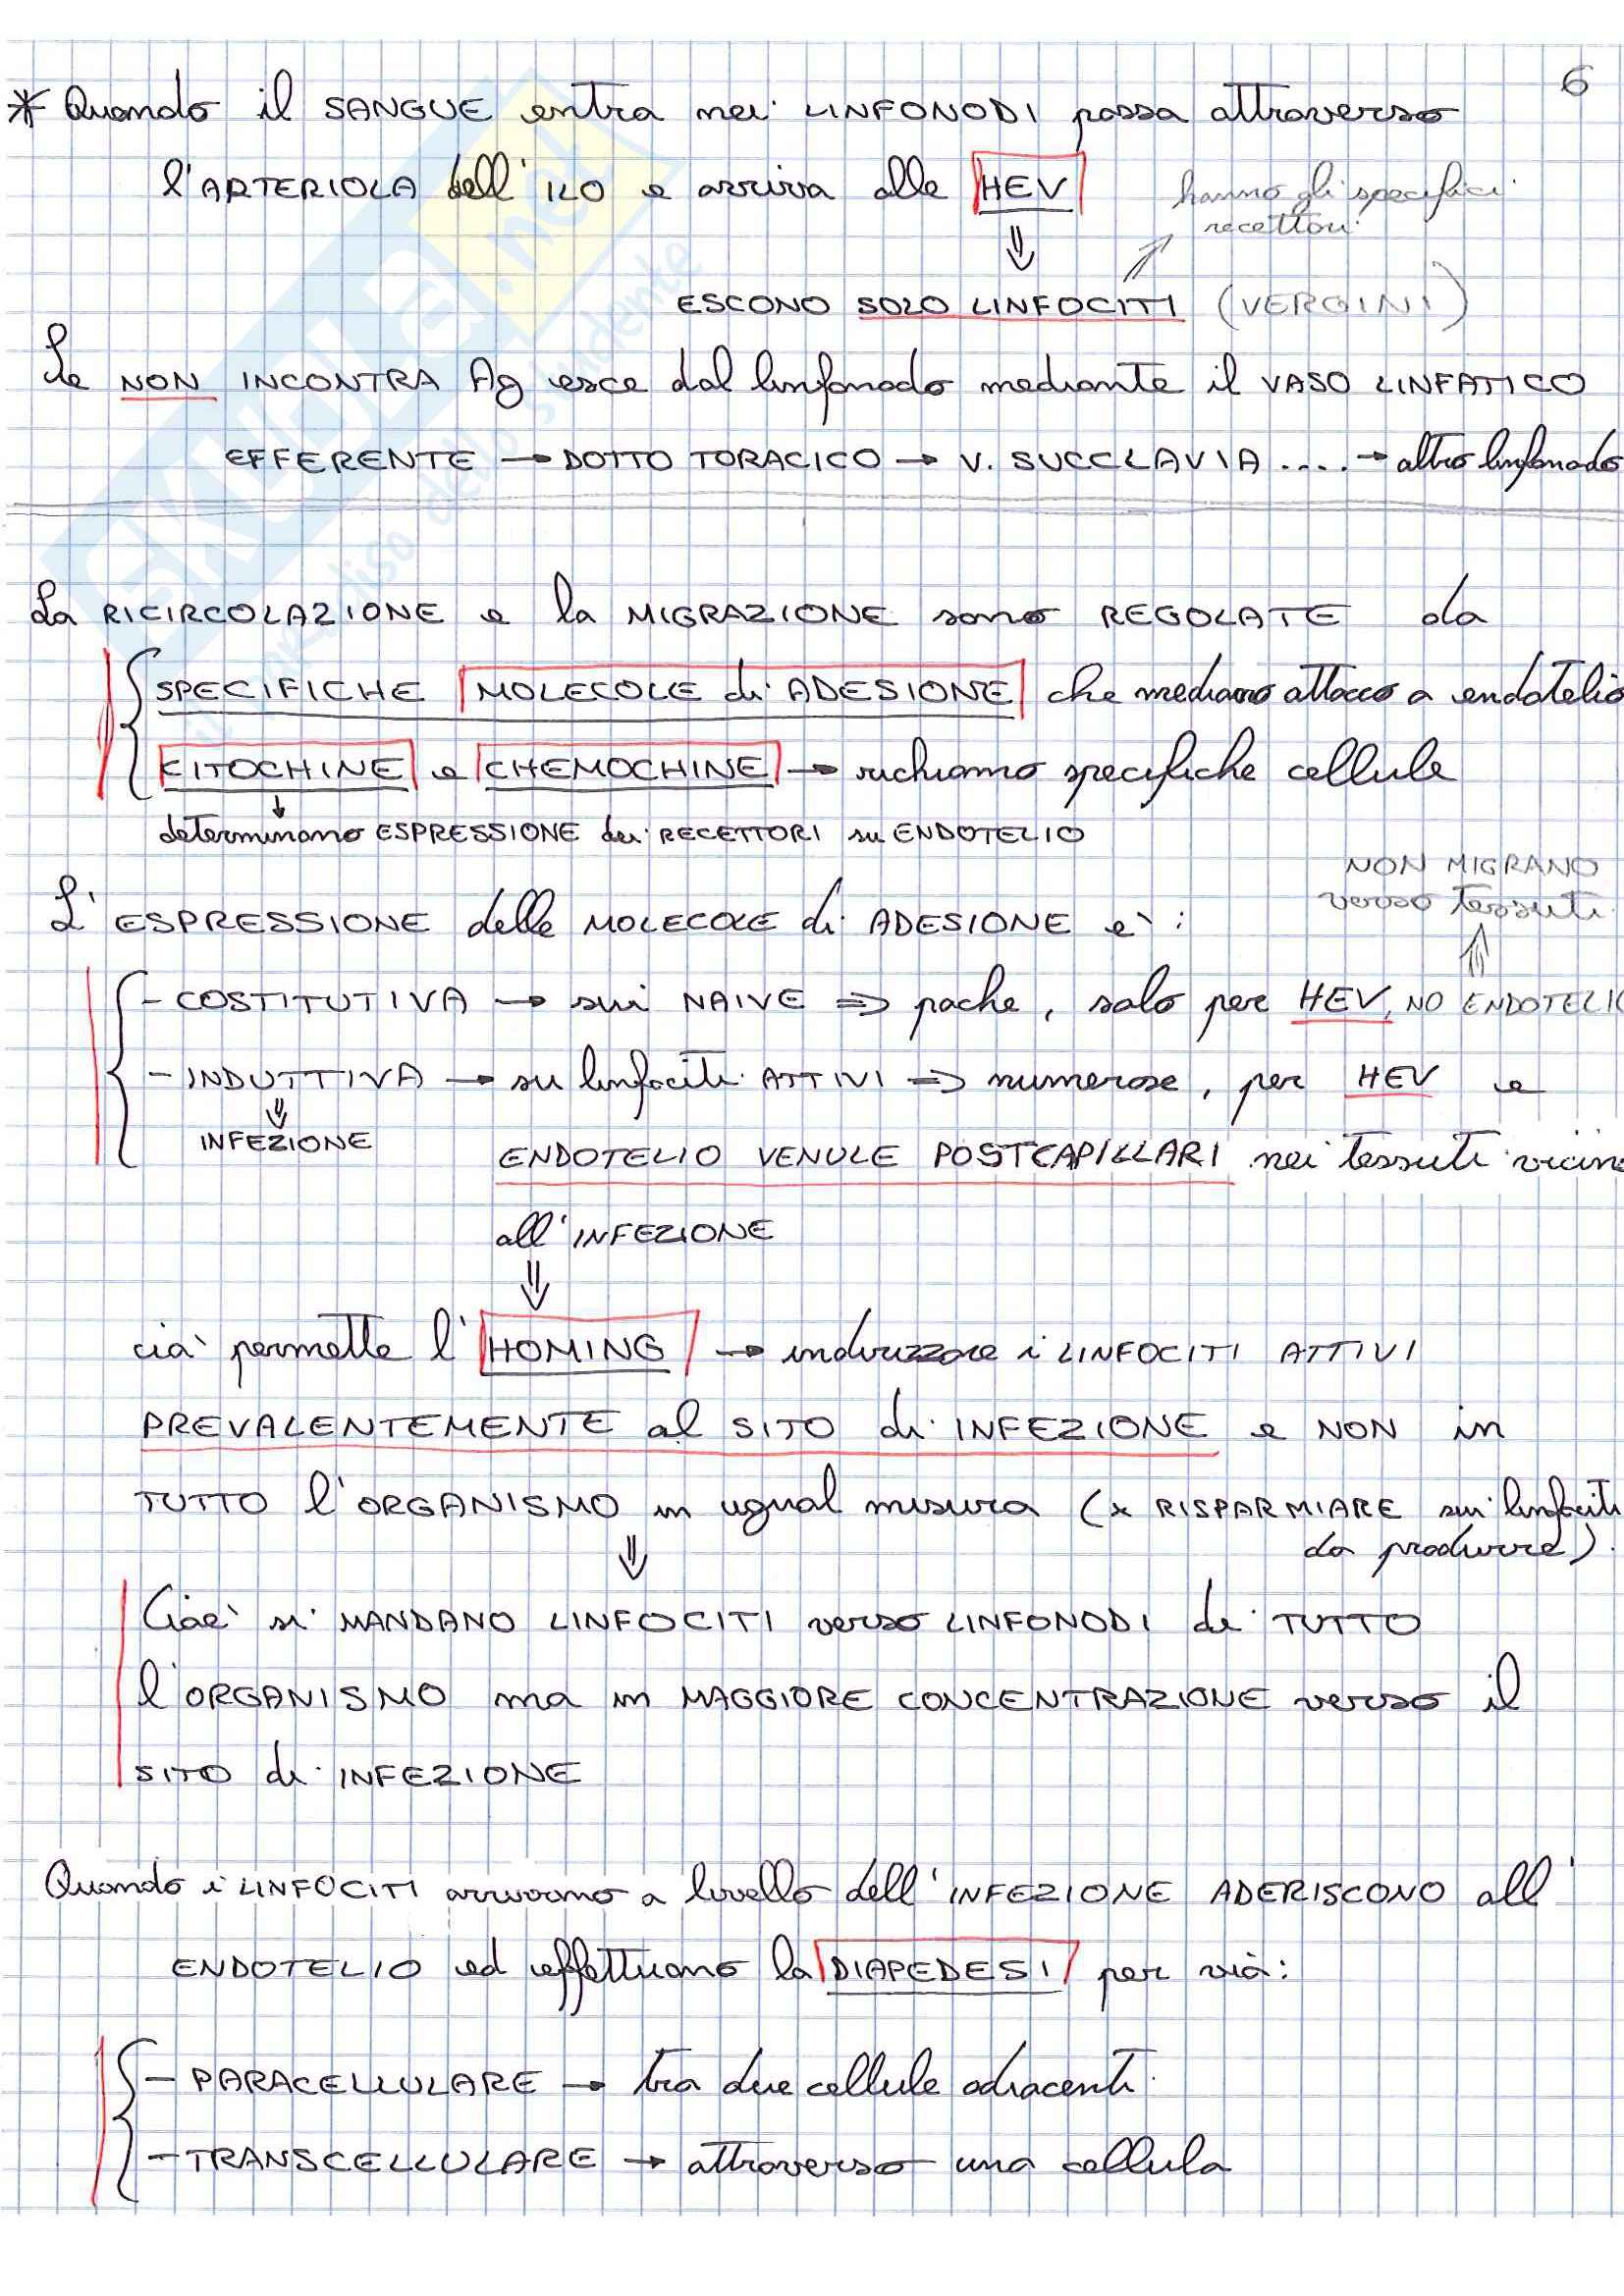 6
* Quando il SANGUE entra nei LINFONODI passa attraverso
l'ARTERIOLA dell'ILO e arriva alle HEV
hanno gli specifici
recettori
⇓
ESCONO SOLO LINFOCITI (VERGINI)
Se NON INCONTRA Ag esce dal linfonodo mediante il VASO LINFATICO
EFFERENTE → DOTTO TORACICO → V. SUCCLAVIA .... → altro linfonodo
La RICIRCOLAZIONE e la MIGRAZIONE sono REGOLATE da
SPECIFICHE MOLECOLE di ADESIONE che mediano attacco a endotelio
CITOCHINE e CHEMOCHINE → richiamo specifiche cellule
↓
determinano ESPRESSIONE dei RECETTORI su ENDOTELIO
NON MIGRANO
verso tessuti
L'ESPRESSIONE delle MOLECOLE di ADESIONE è:
- COSTITUTIVA → sui NAIVE ⇒ poche, solo per HEV, NO ENDOTELIO
- INDUTTIVA → su linfociti ATTIVI ⇒ numerose, per HEV e
⇓
INFEZIONE
ENDOTELIO VENULE POSTCAPILLARI nei tessuti vicino
all'INFEZIONE
⇓
ciò permette l'HOMING → indirizzare i LINFOCITI ATTIVI
PREVALENTEMENTE al SITO di INFEZIONE e NON in
TUTTO l'ORGANISMO in ugual misura (x RISPARMIARE sui linfociti
da produrre).
⇓
Cioè si MANDANO LINFOCITI verso LINFONODI di TUTTO
l'ORGANISMO ma in MAGGIORE CONCENTRAZIONE verso il
SITO di INFEZIONE
Quando i LINFOCITI arrivano a livello dell'INFEZIONE ADERISCONO all'
ENDOTELIO ed effettuano la DIAPEDESI per via:
- PARACELLULARE → tra due cellule adiacenti
- TRANSCELLULARE → attraverso una cellula